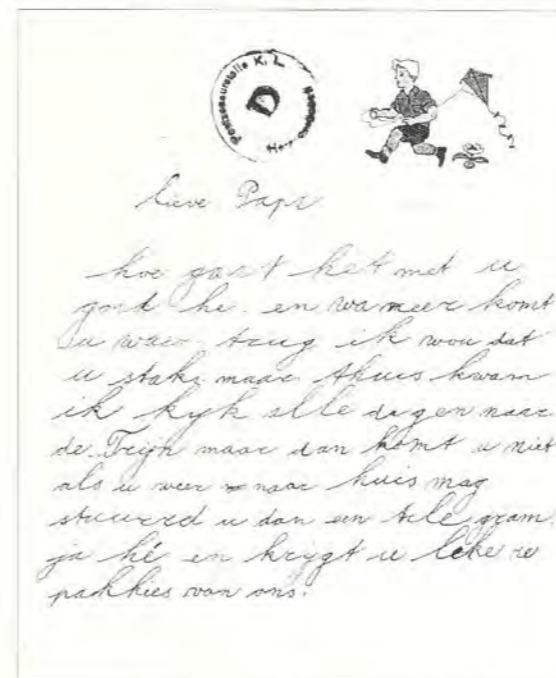 Postzensurstelle K. L.
D
lieve Paps
hoe gaat het met u
goed he. en wanneer komt
u weer trug ik wou dat
u staks maar thuis kwam
ik kyk alle dagen naar
de Trijn maar dan komt u niet
als u weer naar huis mag
stuurd u dan een tele gram
ja hé en krygt u lekere
pakkies van ons.